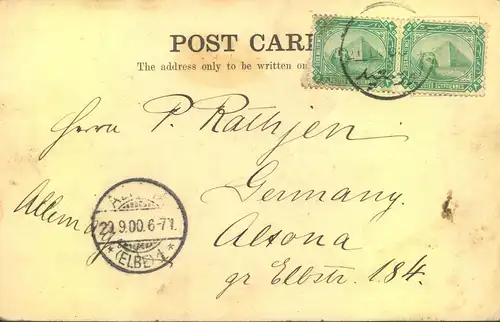 POST CARD
The address only to be written on
بورسعيد
Herrn P. Rathjen
Germany.
Allemag
Altona
gr Elbstr. 184.
9.00.6-7
* (ELBE) 1 *